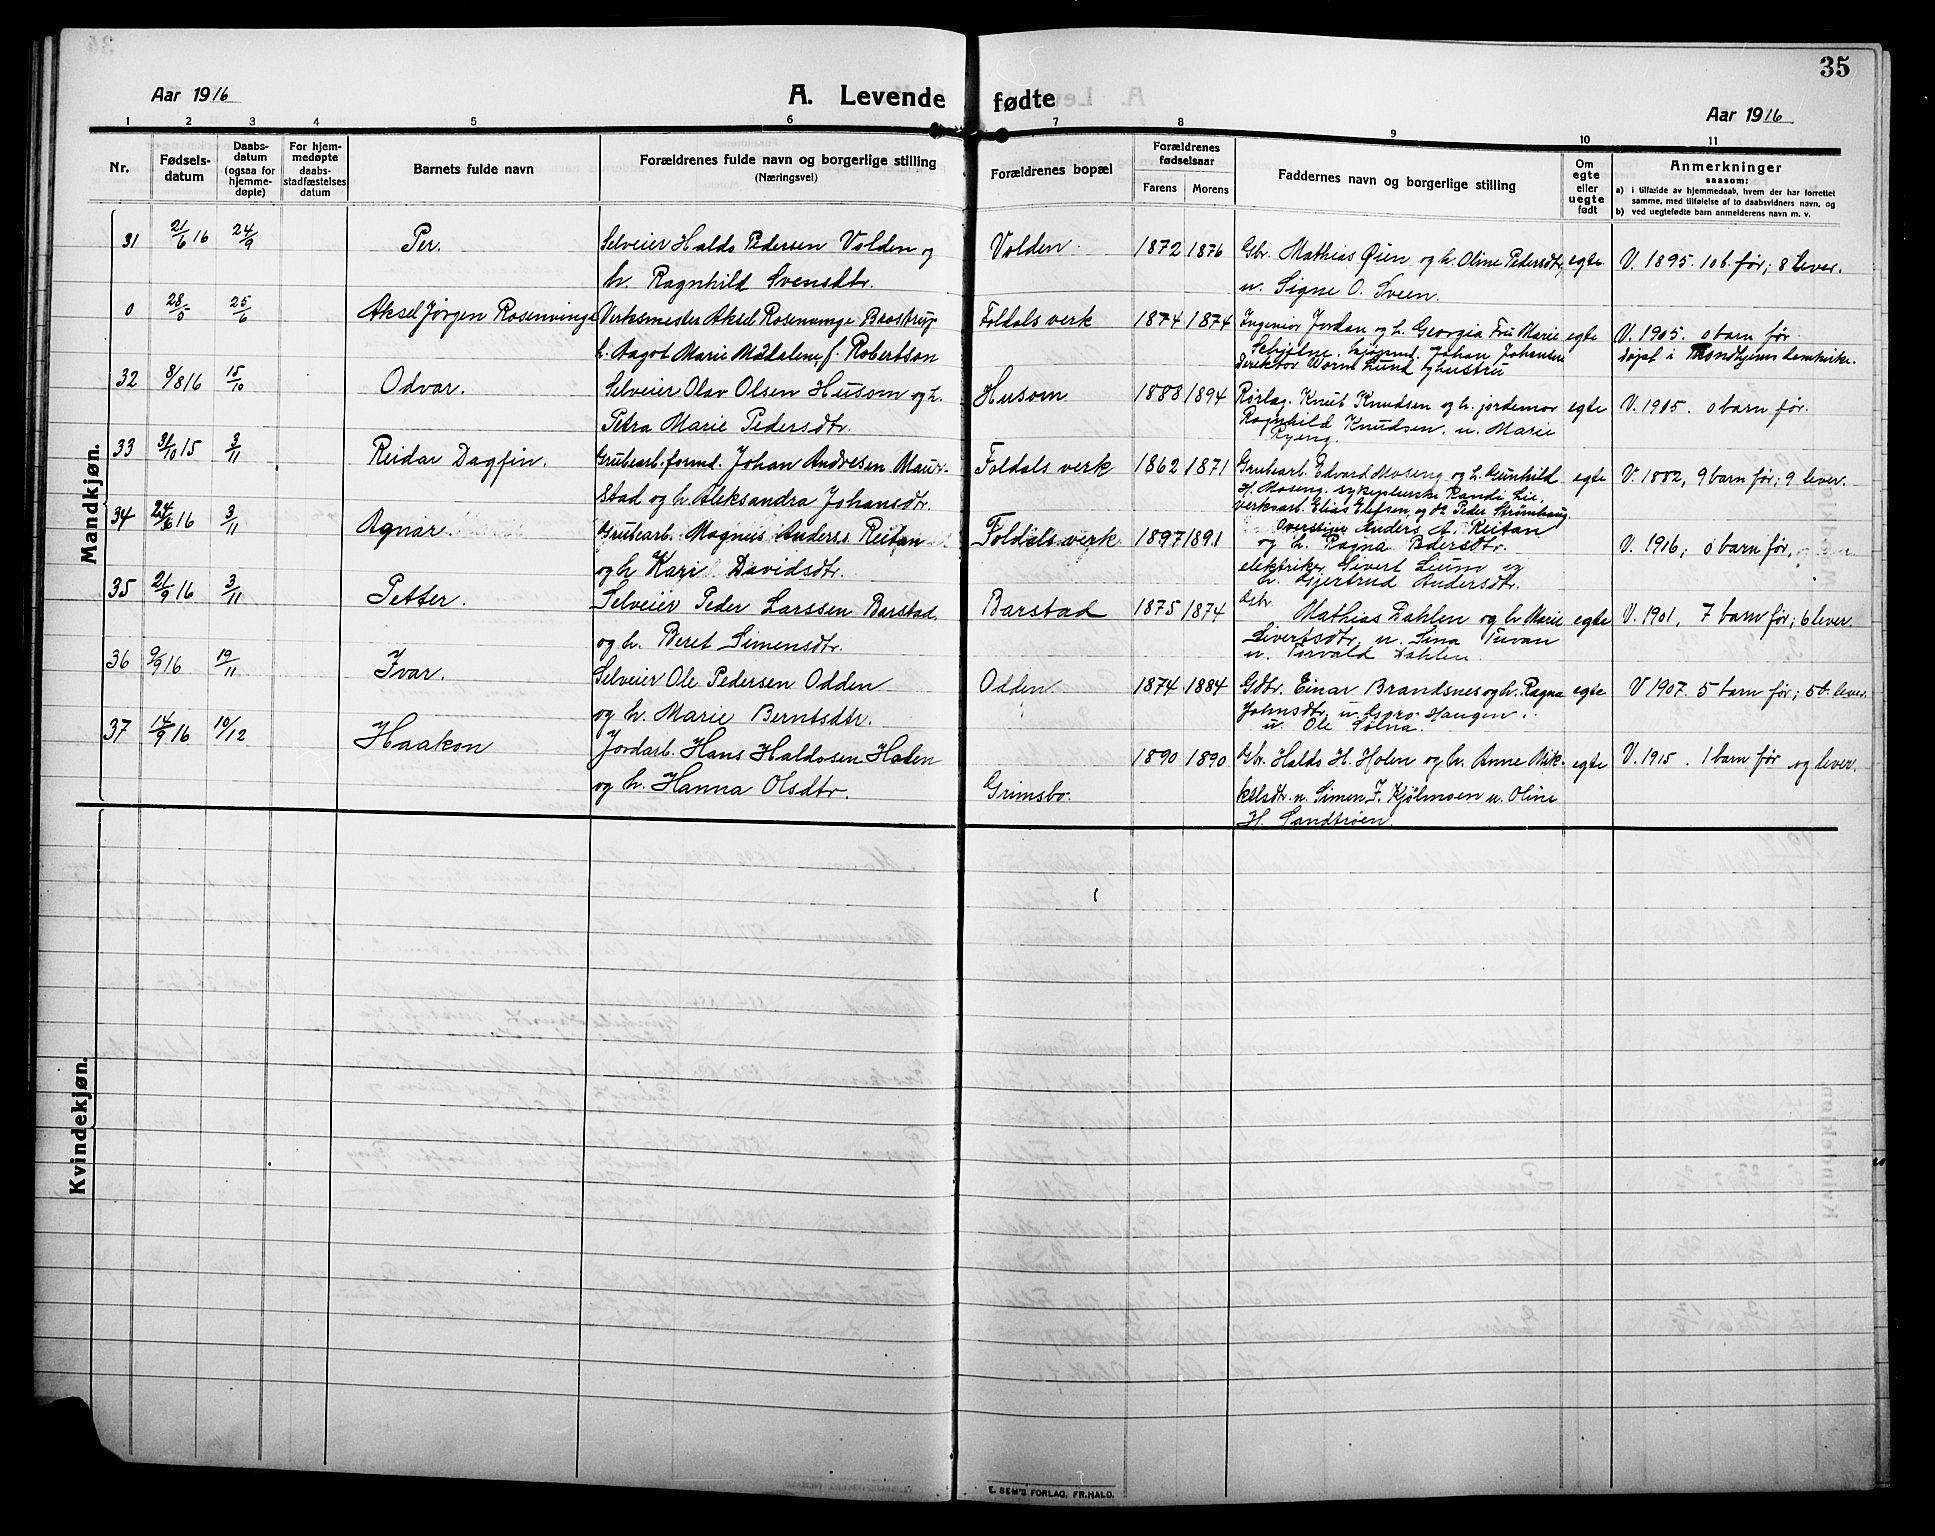 35
Aar 1916
A. Levende fødte
Aar 1916
1 2 3 4 5 6 7 8 9 10 11
Nr.
Fødsels-
datum
Daabs-
datum
(ogsaa for
hjemme-
døpte)
For hjem-
medøpte
daabs-
stadfæstelses
datum
Barnets fulde navn
Forældrenes fulde navn og borgerlige stilling
(Næringsvei)
Forældrenes bopæl
Forældrenes
fødselsaar
Farens Morens
Faddernes navn og borgerlige stilling
Om
egte
eller
uegte
født
Anmerkninger
saasom:
a) i tilfælde av hjemmedaab, hvem der har forrettet
samme, med tilføielse af to daabsvidners navn, og
b) ved uegtefødte barn anmelderens navn m. v.
Mandkjøn.
31 21/6 16 24/9 Per. Selveier Halds Pedersen Volden og Volden. 1872 1876 Gbr. Mathias Øien og h. Oline Pedersdtr, egte V. 1895. 10 b. før; 8 lever.
h. Ragnhild Svensdtr. u. Signe O. Sveen.
0 28/5 25/6 Aksel Jørgen Rosenvinge Verksmester Aksel Rosenvinge Baastrup Foldals verk 1874 1874 Ingeniør Jordan og h. Georgia Fru Marie egte V. 1905. 0 barn før
h. Aagot Marie Madalene f. Robertson Johan Johansen døpt i Trondhjems domkirke.
Direktør Worm Lund
32 8/8 16 15/10 Odvar. Selveier Olav Olsen Husom og h. Husom 1888 1894 Rørlag. Knut Knudsen og h. jordemor egte V. 1905. 0 barn før.
Petra Marie Pedersdtr. Ragnhild Knudsen. u. Marie
Ryeng.
33 31/10 15 3/11 Reidar Dagfin. Grubearb. formd. Johan Andresen Maur- Foldals verk 1862 1871 Grubearb. Edvard Moseng og h. Gunhild egte V. 1882, 9 barn før; 9 lever.
stad og h. Aleksandra Johansdtr. H. Moseng. sykepleierske Randi Lie,
Verksarb. Elias Elefsen, og Peder
34 24/6 16 3/11 Agnar. Grubearb. Magnus Anders. Reitan Foldals verk 1897 1891 Overstiger Anders A. Reitan V. 1916; 0 barn før,
og h Kari Davidsdtr. og h. Ragna Pedersdtr.
elektriker Sivert Lium og
h. Gjertrud Andersdtr.
35 21/9 16 3/11 Petter. Selveier Peder Larssen Barstad. Barstad 1875 1874 Gbr. Mathias Dahlen og h Marie egte V. 1901, 7 barn før; 6 lever
og h. Beret Simensdtr. Sivertsdtr, u. Sina Tuvan
u. Torvald Dahlen.
36 9/9 16 19/11 Ivar. Selveier Ole Pedersen Odden Odden 1874 1884 Gdbr. Einar Brandsnes og h. Ragna egte V 1907. 5 barn før; 5 b. lever.
og h. Marie Berntsdtr. Johnsdtr, u. Haugen.
u. Ole Solna.
37 14/9 16 10/12 Haakon Jordarb. Hans Haldosen Holen 1890 1890 Gbr. Halds H. Holen og h. Anne Mik- egte V. 1915. 1 barn før og lever.
og h. Hanna Olsdtr. Grimsbo. kelsdtr. u. Simen J. Kjølmoen u. Oline
H. Sandtrøen.
Kvindekjøn.
E. SEM'S FORLAG, FR.HALD.